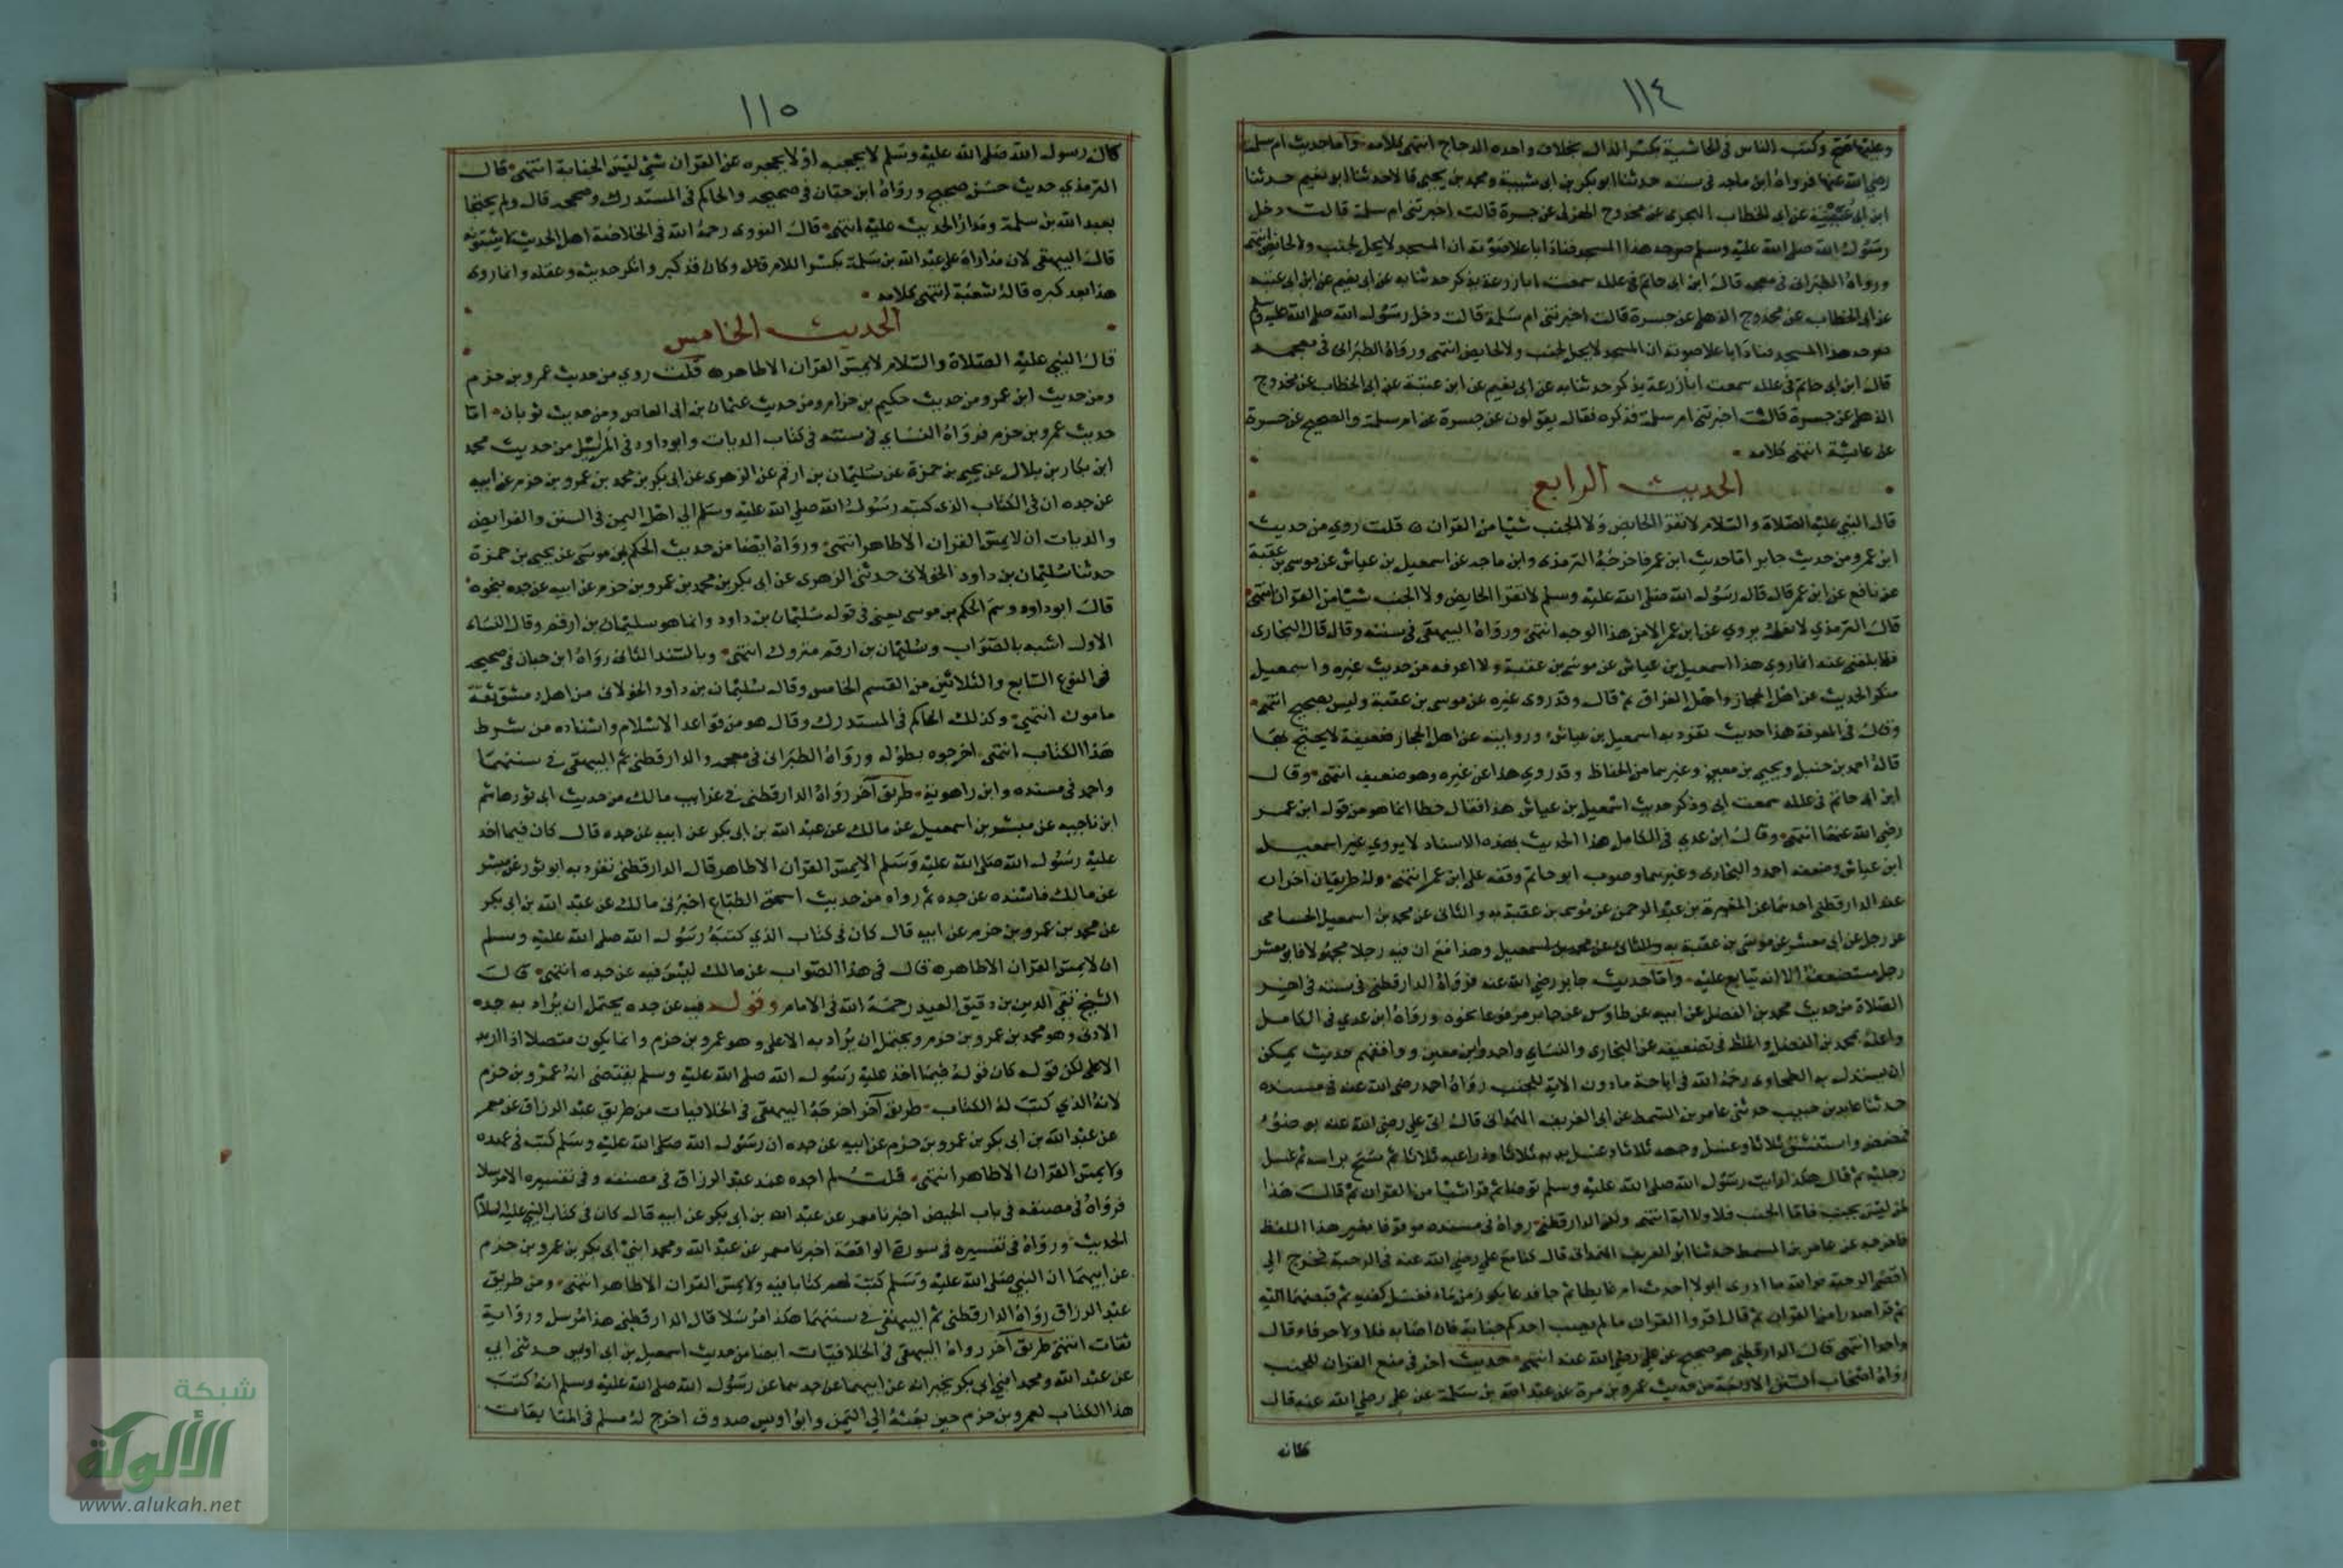 ١١٤
وعليها فتح وكتب الناس في الحاشية بكسر الدال بخلاف واحده الدجاج انتهى كلامه وأما حديث ام سلمة
رضي الله عنها فرواه ابن ماجه في سننه حدثنا ابو بكر بن ابي شيبة ومحمد بن يحيى قالا حدثنا ابو نعيم حدثنا
ابن ابي عن ابي الخطاب الهجري عن محدوج الهذلي عن جسرة قالت اخبرتني ام سلمة قالت دخل
رسول الله صلى الله عليه وسلم صرحة هذا المسجد فنادى باعلا صوته ان المسجد لا يحل لجنب ولا لحائض انتهى
ورواه الطبراني في معجمه قال ابن ابي حاتم في علله سمعت ابا زرعة يذكر حدثنا به عن ابي نعيم عن ابن ابي عتبة
عن ابي الخطاب عن محدوج الذهلي عن جسرة قالت اخبرتني ام سلمة قالت دخل رسول الله صلى الله عليه وسلم
صرحة هذا المسجد فنادى باعلا صوته ان المسجد لا يحل لجنب ولا لحايض انتهى ورواه الطبراني في معجمه
قال ابن ابي حاتم في علله سمعت ابا زرعة يذكر حدثنا به عن ابي نعيم عن ابن عتبة عن ابي الخطاب عن محدوج
الذهلي عن جسرة قالت اخبرتني ام سلمة فذكره فقال يقولون عن جسرة عن ام سلمة والصحيح عن جسرة
عن عايشة انتهى كلامه
الحديث الرابع
قال النبي عليه الصلاة والسلام لا تقرا الحايض ولا الجنب شيا من القران قلت روي من حديث
ابن عمر ومن حديث جابر اما حديث ابن عمر فاخرجه الترمذي وابن ماجه عن اسمعيل بن عياش عن موسى بن عقبة
عن نافع عن ابن عمر قال قال رسول الله صلى الله عليه وسلم لا تقرا الحايض ولا الجنب شيا من القران انتهى
قال الترمذي لا نعلمه يروي عن ابن عمر الا من هذا الوجه انتهى ورواه البيهقي في سننه وقال قال البخاري
فيما بلغني عنه انما روي هذا اسمعيل بن عياش عن موسى بن عقبة ولا اعرفه من حديث غيره واسمعيل
منكر الحديث عن اهل الحجاز واهل العراق ثم قال وقد روى غيره عن موسى بن عقبة وليس بصحيح انتهى
وقال في المعرفة هذا حديث تفرد به اسمعيل بن عياش وروايته عن اهل الحجاز ضعيفة لا يحتج بها
قاله احمد بن حنبل ويحيى بن معين وغيرهما من الحفاظ وقد روي هذا عن غيره وهو ضعيف انتهى وقال
ابن ابي حاتم في علله سمعت ابي وذكر حديث اسمعيل بن عياش هذا فقال خطا انما هو من قول ابن عمر
رضي الله عنهما انتهى وقال ابن عدي في الكامل هذا الحديث بهذه الاسناد لا يروي غير اسمعيل
ابن عياش وضعفه احمد والبخاري وغيرهما وصوب ابو حاتم وقفه على ابن عمر انتهى وله طريقان اخران
عند الدارقطني احدهما عن المغيرة بن عبد الرحمن عن موسى بن عقبة به والثاني عن محمد بن اسمعيل الحسامي
عن رجل عن ابي معشر عن موسى بن عقبة به والثاني عن محمد بن اسمعيل وهذا مع ان فيه رجلا مجهولا فابو معشر
رجل مستضعف الا انه يتابع عليه واما حديث جابر رضي الله عنه فرواه الدارقطني في سننه في اخر
الصلاة من حديث محمد بن الفضل عن ابيه عن طاوس عن جابر مرفوعا نحوه ورواه ابن عدي في الكامل
واعله بمحمد بن الفضل واغلظ في تضعيفه عن البخاري والنساي واحمد وابن معين ووافقهم حديث يمكن
ان يستدل به الطحاوي رحمه الله في اباحة ما دون الاية للجنب رواه احمد رضي الله عنه في مسنده
حدثنا عايد بن حبيب حدثني عامر بن السمط عن ابي الغريف الهمداني قال اتي علي رضي الله عنه بوضوء
فمضمض واستنشق ثلاثا وغسل وجهه ثلاثا وغسل يديه ثلاثا وذراعيه ثلاثا ثم مسح براسه ثم غسل
رجليه ثم قال هكذا رايت رسول الله صلى الله عليه وسلم توضا ثم قرا شيا من القران ثم قال هذا
لمن ليس بجنب فاما الجنب فلا ولا اية انتهى ولكن الدارقطني رواه في مسنده موقوفا بغير هذا اللفظ
فاخرجه عن عامر بن السمط حدثنا ابو الغريف الهمداني قال كنا مع علي رضي الله عنه في الرحبة فخرج الى
اقصى الرحبة فوالله ما ادري ابولا احدث ام غايطا ثم جا فدعا بكوز من ماء فغسل كفيه ثم قبضهما اليه
ثم قرا صدرا من القران ثم قال اقروا القران ما لم يصب احدكم جنابة فان اصابه فلا ولا حرفا قال
واحدا انتهى قال الدارقطني هو صحيح عن علي رضي الله عنه انتهى حديث اخر في منع القران للجنب
رواه اصحاب السنن الاربعة من حديث عمرو بن مرة عن عبد الله بن سلمة عن علي رضي الله عنه قال
كانه
١١٥
كان رسول الله صلى الله عليه وسلم لا يحجبه او لا يحجزه عن القران شي ليس الجنابة انتهى قال
الترمذي حديث حسن صحيح ورواه ابن حبان في صحيحه والحاكم في المستدرك وصححه قال ولم يحتجا
بعبد الله بن سلمة ومدار الحديث عليه انتهى قال النووي رحمه الله في الخلاصة اهل الحديث لا يثبتونه
قال البيهقي لان مداره على عبد الله بن سلمة بكسر اللام قال وكان قد كبر وانكر حديثه وعقله وانما روى
هذا بعد كبره قاله شعبة انتهى كلامه
الحديث الخامس
قال النبي عليه الصلاة والسلام لا يمس القران الا طاهر قلت روي من حديث عمرو بن حزم
ومن حديث ابن عمر ومن حديث حكيم بن حزام ومن حديث عثمان بن ابي العاص ومن حديث ثوبان اما
حديث عمرو بن حزم فرواه النساي في سننه في كتاب الديات وابو داود في المراسيل من حديث محمد
ابن بكار بن بلال عن يحيى بن حمزة عن سليمان بن ارقم عن الزهري عن ابي بكر بن محمد بن عمرو بن حزم عن ابيه
عن جده ان في الكتاب الذي كتبه رسول الله صلى الله عليه وسلم الى اهل اليمن في السنن والفرايض
والديات ان لا يمس القران الا طاهر انتهى ورواه ايضا من حديث الحكم بن موسى عن يحيى بن حمزة
حدثنا سليمان بن داود الخولاني حدثني الزهري عن ابي بكر بن محمد بن عمرو بن حزم عن ابيه عن جده بنحوه
قال ابو داود وهم الحكم بن موسى يعني في قوله سليمان بن داود وانما هو سليمان بن ارقم وقال النساء
الاول اشبه بالصواب وسليمان بن ارقم متروك انتهى وبالسند الثاني رواه ابن حبان في صحيحه
في النوع السابع والثلاثين من القسم الخامس وقال سليمان بن داود الخولاني من اهل دمشق ثقة
مامون انتهى وكذلك الحاكم في المستدرك وقال هو من قواعد الاسلام واسناده من شرط
هذا الكتاب انتهى اخرجوه بطوله ورواه الطبراني في معجمه والدارقطني ثم البيهقي في سننهما
واحمد في مسنده وابن راهوية طريق آخر رواه الدارقطني في غرايب مالك من حديث ابي ثور هاشم
ابن ناجيه عن مبشر بن اسمعيل عن مالك عن عبد الله بن ابي بكر عن ابيه عن جده قال كان فيما اخذ
عليه رسول الله صلى الله عليه وسلم الا يمس القران الا طاهر قال الدارقطني تفرد به ابو ثور عن مبشر
عن مالك فاسنده عن جده ثم رواه من حديث اسحق الطباع اخبرني مالك عن عبد الله بن ابي بكر
عن محمد بن عمرو بن حزم عن ابيه قال كان في كتاب الذي كتبه رسول الله صلى الله عليه وسلم
ان لا يمس القران الا طاهر قال في هذا الصواب عن مالك ليس فيه عن جده انتهى قال
الشيخ تقي الدين بن دقيق العيد رحمه الله في الامام وقوله فيه عن جده يحتمل ان يراد به جده
الادنى وهو محمد بن عمرو بن حزم ويحتمل ان يراد به الاعلى وهو عمرو بن حزم وانما يكون متصلا اذا اريد
الاعلى لكن قوله كان قوله فيما اخذ عليه رسول الله صلى الله عليه وسلم يقتضي انه عمرو بن حزم
لانه الذي كتب له الكتاب طريق آخر اخرجه البيهقي في الخلافيات من طريق عبد الرزاق عن معمر
عن عبد الله بن ابي بكر بن عمرو بن حزم عن ابيه عن جده ان رسول الله صلى الله عليه وسلم كتب في عهده
ولا يمس القران الا طاهر انتهى قلت لم اجده عند عبد الرزاق في مصنفه وفي تفسيره الا مرسلا
فرواه في مصنفه في باب الحيض اخبرنا معمر عن عبد الله بن ابي بكر عن ابيه قال كان في كتاب النبي عليه السلام
الحديث ورواه في تفسيره في سورة الواقعة اخبرنا معمر عن عبد الله ومحمد ابني ابي بكر بن عمرو بن حزم
عن ابيهما ان النبي صلى الله عليه وسلم كتب لهم كتابا فيه ولا يمس القران الا طاهر انتهى ومن طريق
عبد الرزاق رواه الدارقطني ثم البيهقي في سننهما هكذا مرسلا قال الدارقطني هذا مرسل ورواية
ثقات انتهى طريق آخر رواه البيهقي في الخلافيات ايضا من حديث اسمعيل بن ابي اويس حدثني ابي
عن عبد الله ومحمد ابني ابي بكر يخبرانه عن ابيهما عن جدهما عن رسول الله صلى الله عليه وسلم انه كتب
هذا الكتاب لعمرو بن حزم حين بعثه الى اليمن وابو اويس صدوق اخرج له مسلم في المتابعات
شبكة
الألوكة
www.alukah.net